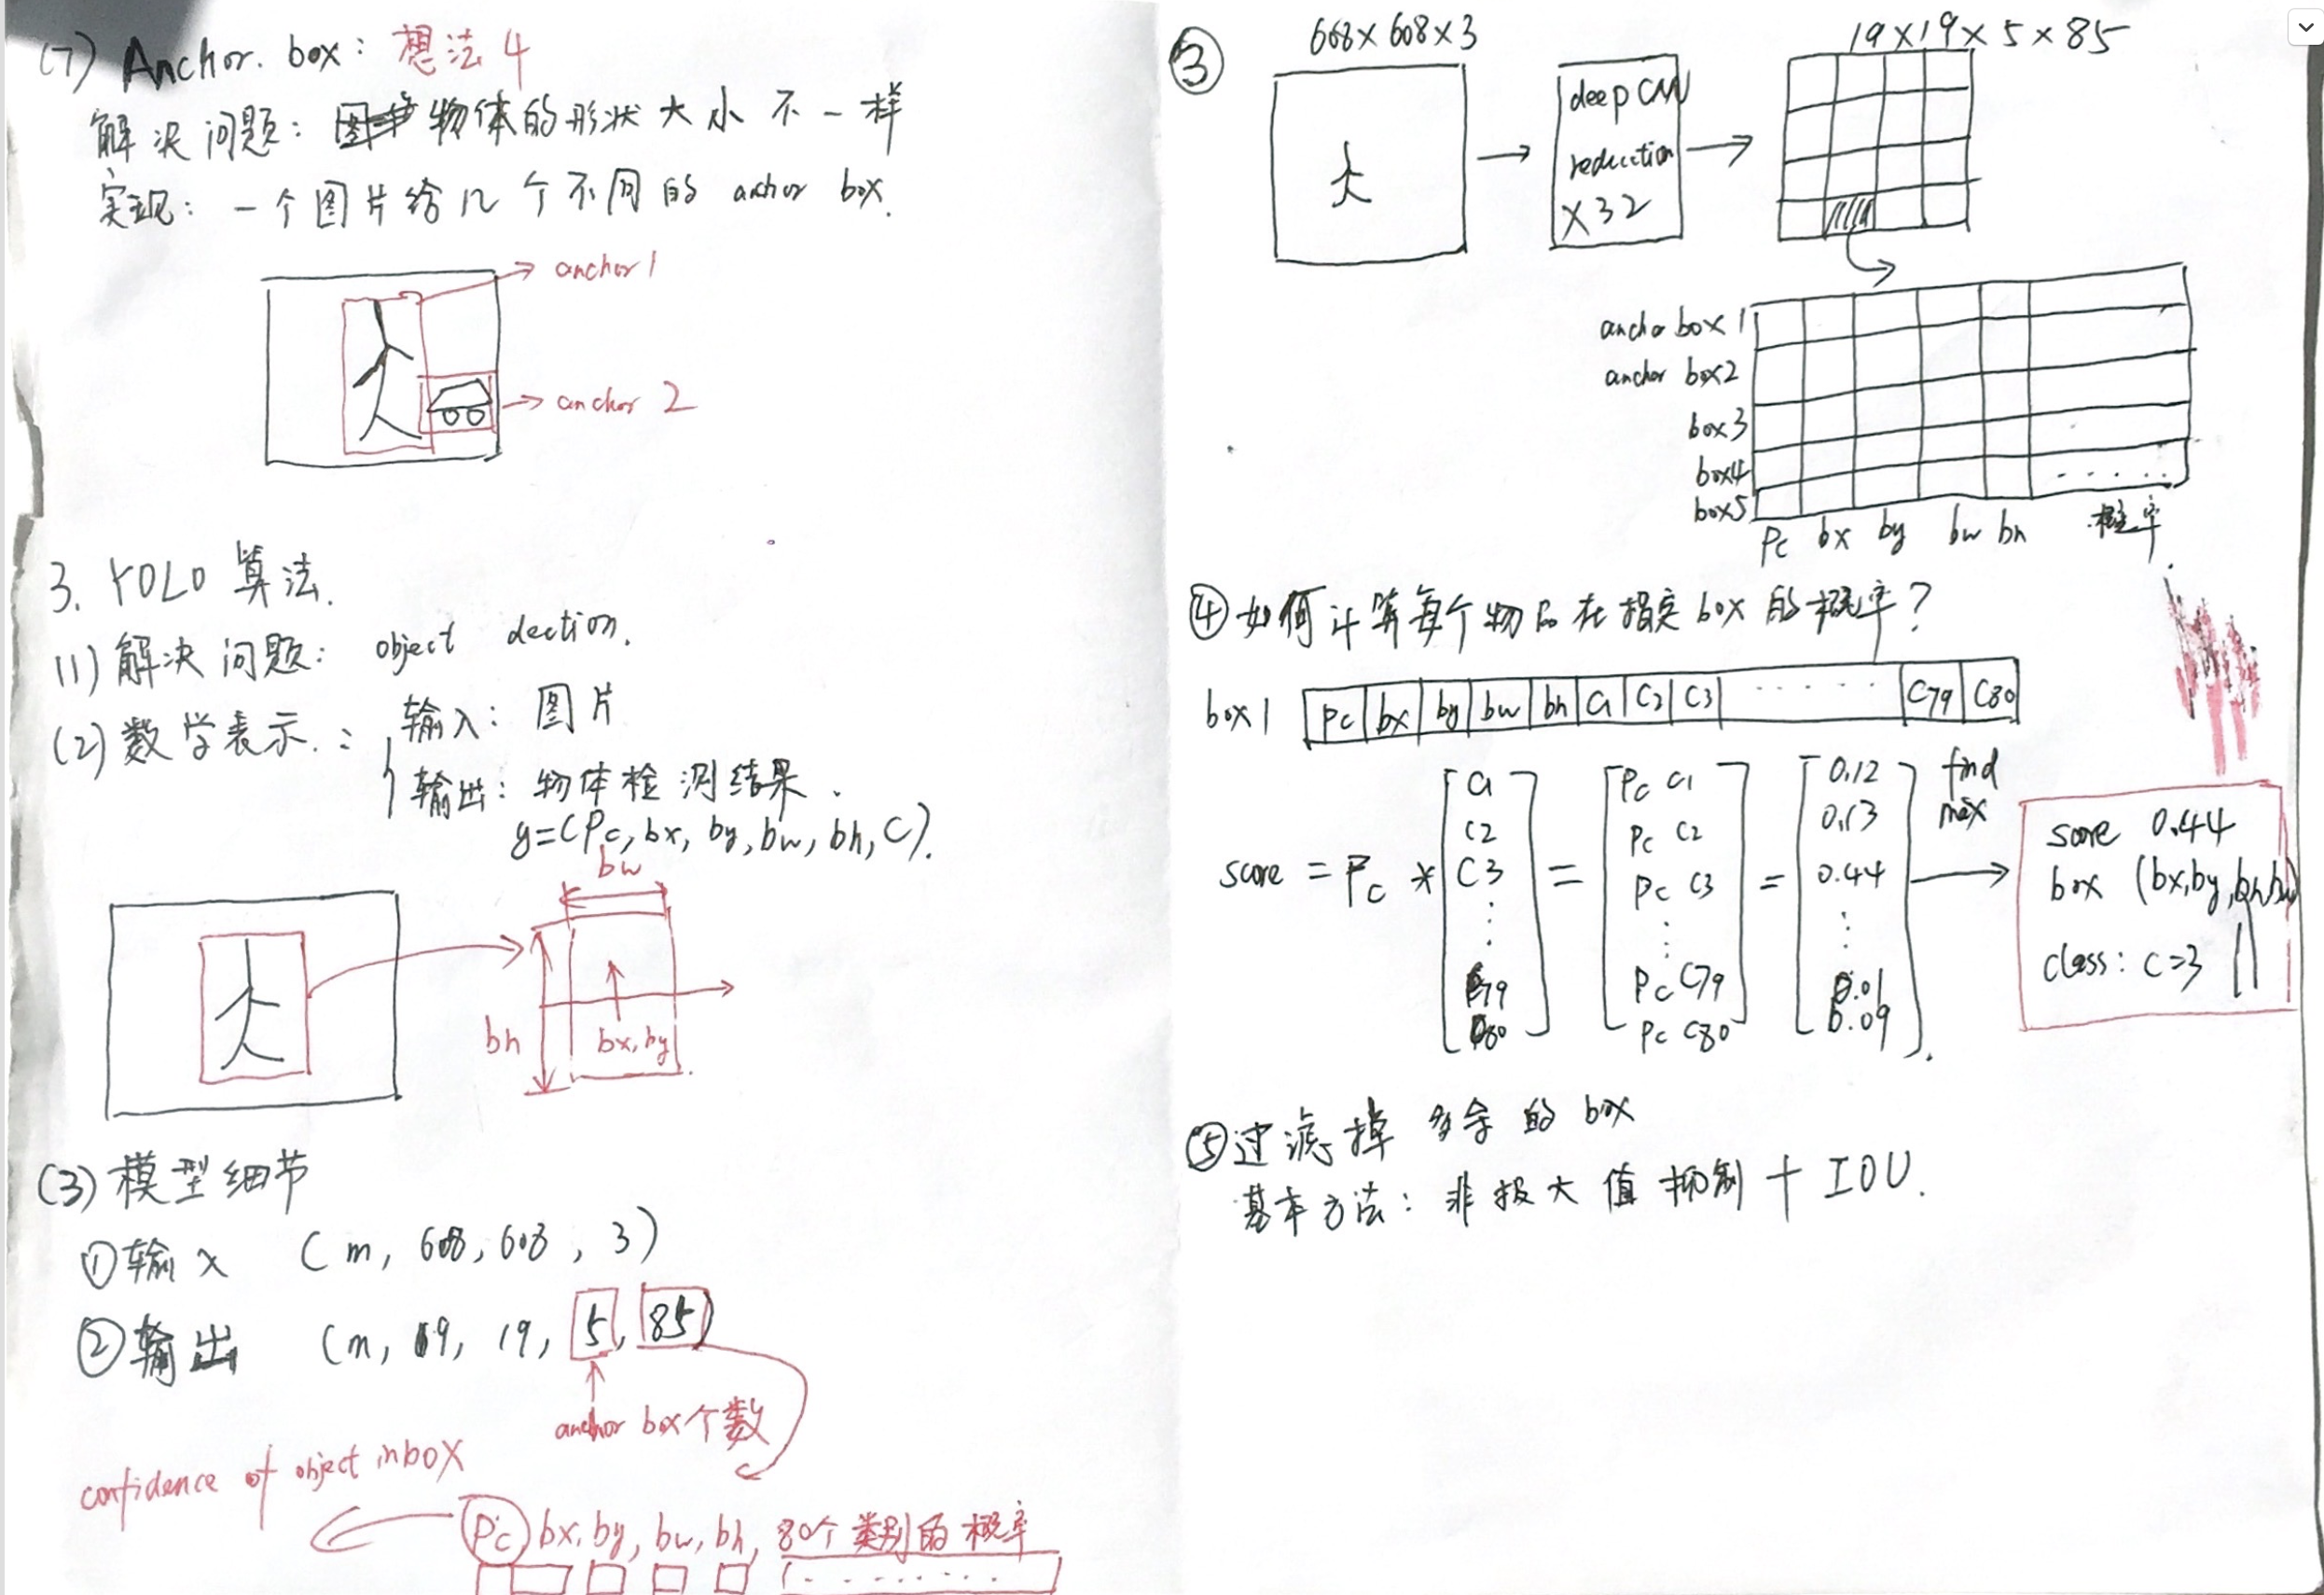 (7) Anchor. box: 想法4
解决问题: 物体的形状大小不一样
实现: 一个图片给几个不同的 anchor box.
anchor 1
anchor 2
3. YOLO 算法.
(1) 解决问题: object dection.
(2) 数学表示.:
输入: 图片
输出: 物体检测结果.
y=(Pc, bx, by, bw, bh, C).
bw
bh
bx, by
(3) 模型细节
①输入 (m, 608, 608, 3)
②输出 (m, 19, 19, 5, 85)
anchor box个数
confidence of object in box
Pc bx, by, bw, bh, 80个类别的概率
③
608×608×3
19×19×5×85
deep CNN
reduction
×32
anchor box 1
anchor box2
box3
box4
box5
Pc bx by bw bh 概率
④如何计算每个物品在指定box的概率?
box 1 Pc bx by bw bh C1 C2 C3 ...... C79 C80
score = Pc * [C1 C2 C3 ⋮ C79 C80] = [Pc C1 Pc C2 Pc C3 ⋮ Pc C79 Pc C80] = [0.12 0.13 0.44 ⋮ 0.01 0.09]
find
max
score 0.44
box (bx, by, bh, bw)
class: C=3
⑤过滤掉多余的box
基本方法: 非极大值抑制 + IOU.